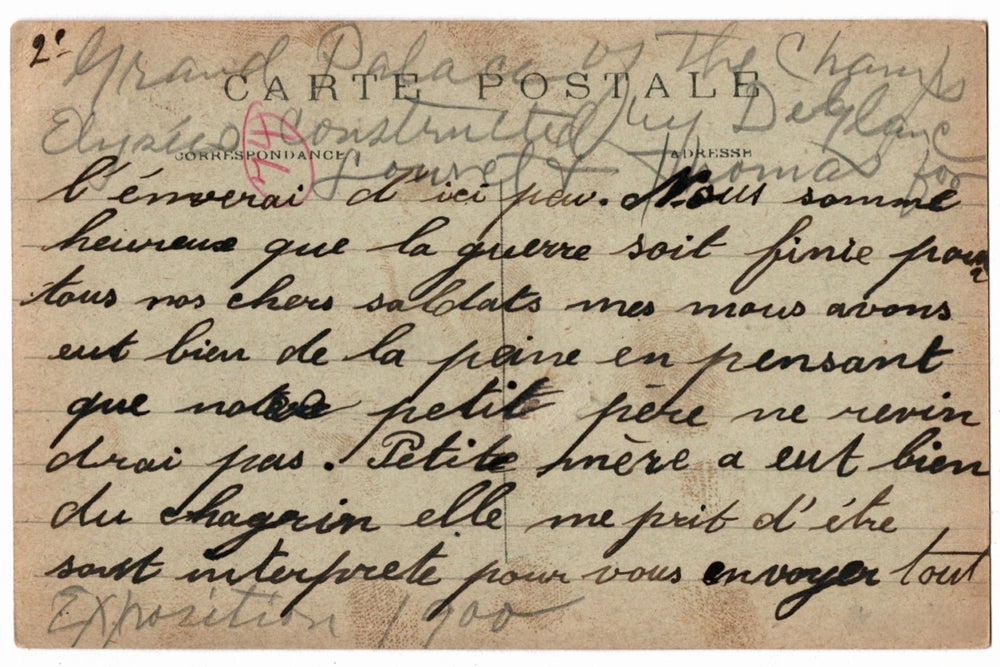 2e
Grand Palace of the Champs
CARTE POSTALE
Elysées constructed by Deglanc
CORRESPONDANCE
ADRESSE
74
Louvet & Thomas for
l'énverai d'ici peu. Nous somme
heureux que la guerre soit finie pour
tous nos chers saldats mes mous avons
eut bien de la peine en pensant
que notre petit père ne revin
drai pas. Petite mère a eut bien
du chagrin elle me prit d'être
sont interprete pour vous envoyer tout
Exposition 1900